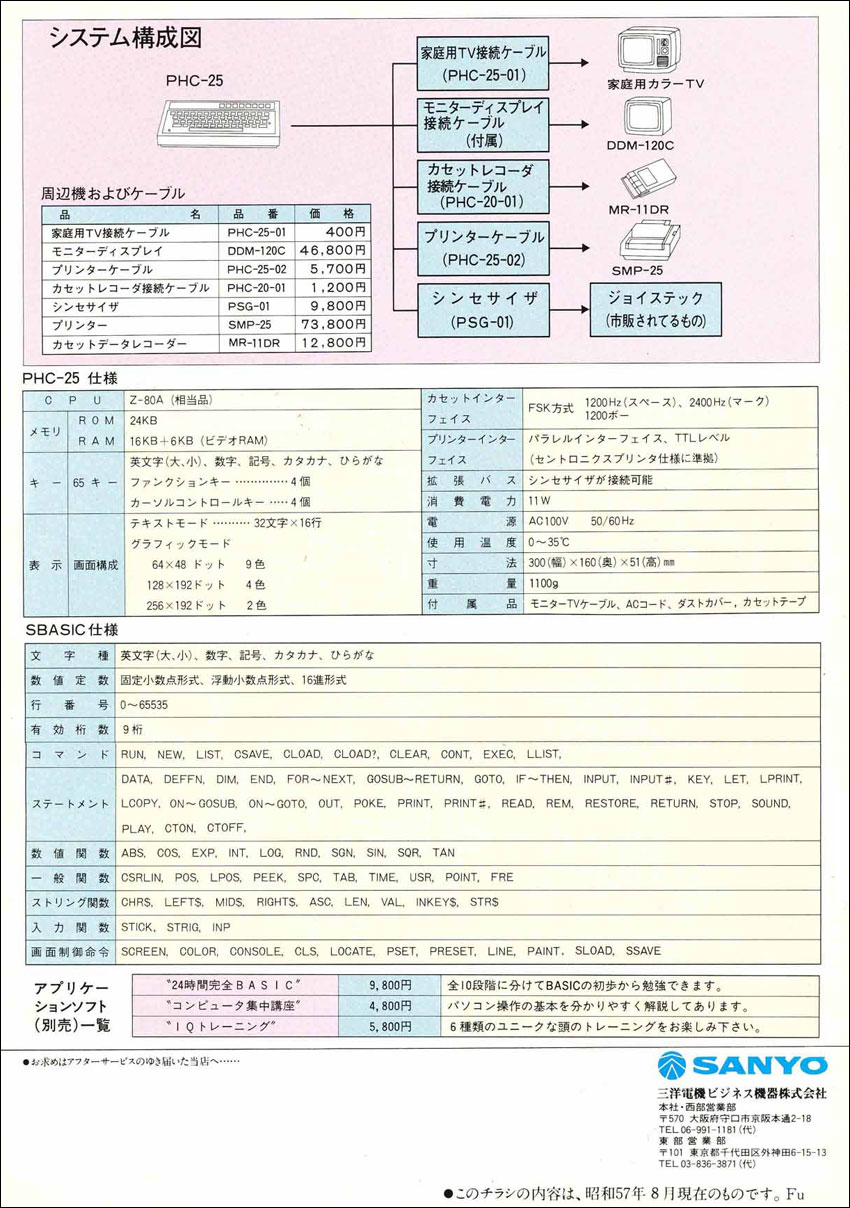 システム構成図
PHC-25
家庭用TV接続ケーブル
(PHC-25-01)
家庭用カラーTV
モニターディスプレイ
接続ケーブル
(付属)
DDM-120C
カセットレコーダ
接続ケーブル
(PHC-20-01)
MR-11DR
プリンターケーブル
(PHC-25-02)
SMP-25
シンセサイザ
(PSG-01)
ジョイステック
(市販されてるもの)
周辺機およびケーブル
品 名 品 番 価 格
家庭用TV接続ケーブル PHC-25-01 400円
モニターディスプレイ DDM-120C 46,800円
プリンターケーブル PHC-25-02 5,700円
カセットレコーダ接続ケーブル PHC-20-01 1,200円
シンセサイザ PSG-01 9,800円
プリンター SMP-25 73,800円
カセットデータレコーダー MR-11DR 12,800円
PHC-25 仕様
CPU Z-80A (相当品)
メモリ ROM 24KB
RAM 16KB+6KB (ビデオRAM)
キー 65キー 英文字(大、小)、数字、記号、カタカナ、ひらがな
ファンクションキー ·············· 4個
カーソルコントロールキー ····· 4個
表示 画面構成 テキストモード ·········· 32文字×16行
グラフィックモード
64×48 ドット 9色
128×192ドット 4色
256×192ドット 2色
カセットインターフェイス FSK方式 1200Hz(スペース)、2400Hz(マーク)
1200ボー
プリンターインターフェイス パラレルインターフェイス、TTLレベル
(セントロニクスプリンタ仕様に準拠)
拡張バス シンセサイザが接続可能
消費電力 11W
電源 AC100V 50/60Hz
使用温度 0〜35℃
寸法 300(幅)×160(奥)×51(高)㎜
重量 1100g
付属品 モニターTVケーブル、ACコード、ダストカバー，カセットテープ
SBASIC仕様
文字種 英文字(大、小)、数字、記号、カタカナ、ひらがな
数値定数 固定小数点形式、浮動小数点形式、16進形式
行番号 0〜65535
有効桁数 9桁
コマンド RUN, NEW, LIST, CSAVE, CLOAD, CLOAD?, CLEAR, CONT, EXEC, LLIST,
ステートメント DATA, DEFFN, DIM, END, FOR〜NEXT, GOSUB〜RETURN, GOTO, IF〜THEN, INPUT, INPUT#, KEY, LET, LPRINT,
LCOPY, ON〜GOSUB, ON〜GOTO, OUT, POKE, PRINT, PRINT#, READ, REM, RESTORE, RETURN, STOP, SOUND,
PLAY, CTON, CTOFF,
数値関数 ABS, COS, EXP, INT, LOG, RND, SGN, SIN, SQR, TAN
一般関数 CSRLIN, POS, LPOS, PEEK, SPC, TAB, TIME, USR, POINT, FRE
ストリング関数 CHR$, LEFT$, MID$, RIGHT$, ASC, LEN, VAL, INKEY$, STR$
入力関数 STICK, STRIG, INP
画面制御命令 SCREEN, COLOR, CONSOLE, CLS, LOCATE, PSET, PRESET, LINE, PAINT. SLOAD, SSAVE
アプリケー
ションソフト
(別売)一覧
"24時間完全BASIC" 9,800円 全10段階に分けてBASICの初歩から勉強できます。
"コンピュータ集中講座" 4,800円 パソコン操作の基本を分かりやすく解説してあります。
"IQトレーニング" 5,800円 6種類のユニークな頭のトレーニングをお楽しみ下さい。
●お求めはアフターサービスのゆき届いた当店へ……
SANYO
三洋電機ビジネス機器株式会社
本社・西部営業部
〒570 大阪府守口市京阪本通2-18
TEL 06-991-1181(代)
東部営業部
〒101 東京都千代田区外神田6-15-13
TEL 03-836-3871(代)
●このチラシの内容は、昭和57年8月現在のものです。Fu